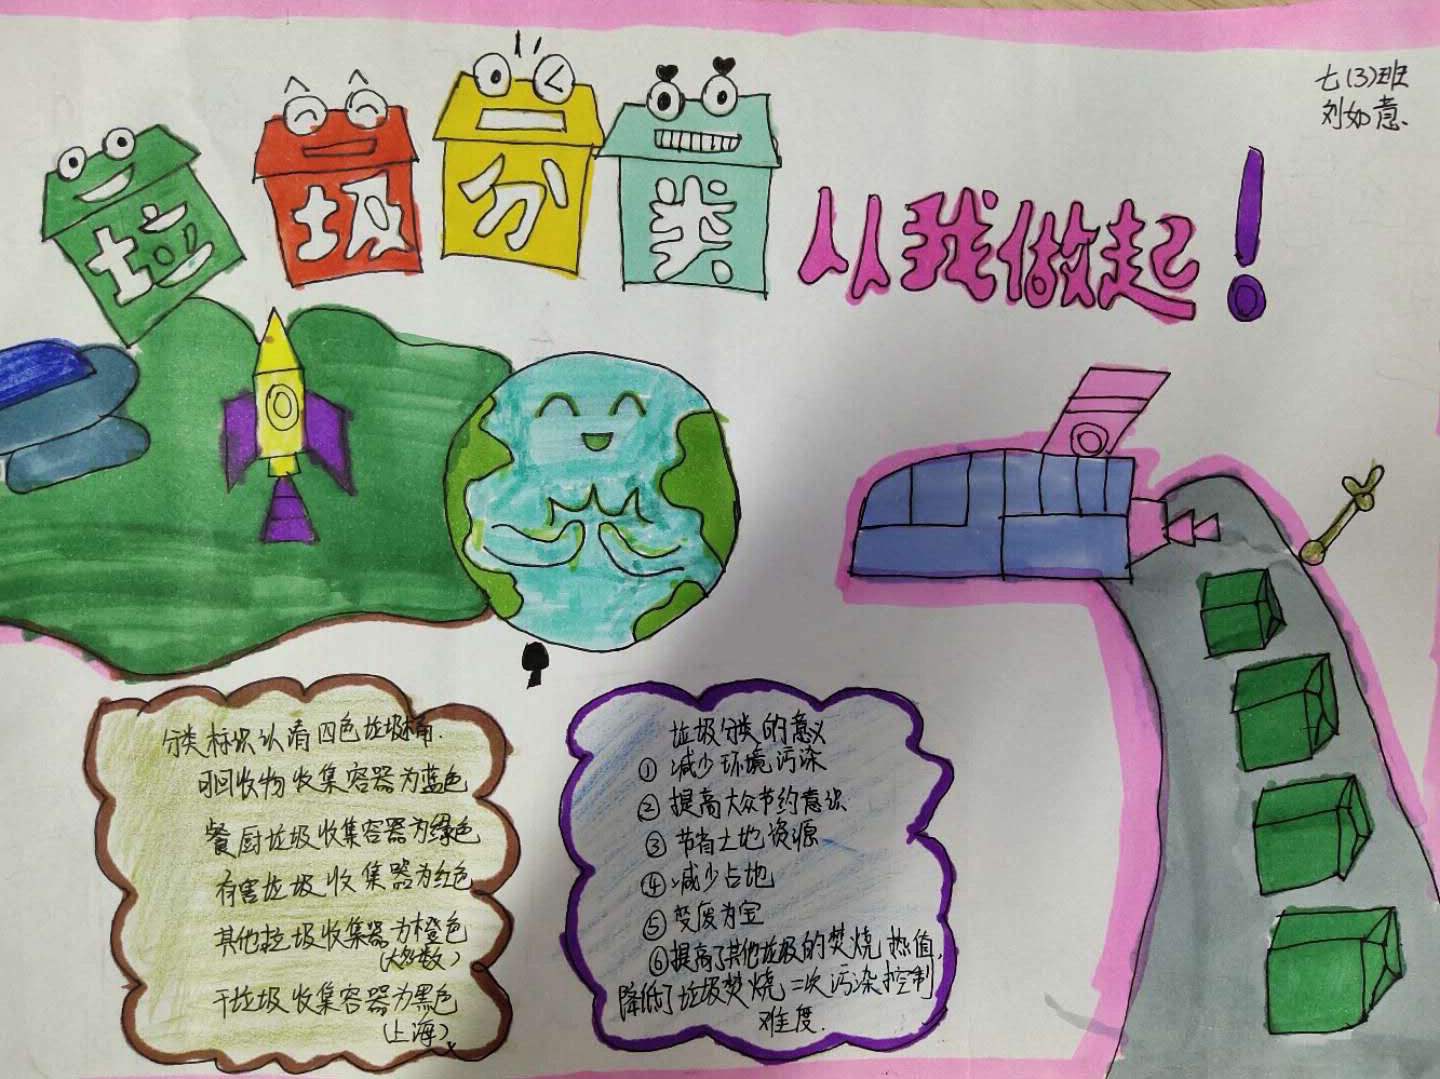 七(3)班
刘如意
垃圾分类
从我做起!
分类标识认清四色垃圾桶.
可回收物收集容器为蓝色
餐厨垃圾收集容器为绿色
有害垃圾收集器为红色
其他垃圾收集器为橙色
(大多数)
干垃圾收集容器为黑色
(上海)
垃圾分类的意义
①减少环境污染
②提高大众节约意识
③节省土地资源
④减少占地
⑤变废为宝
⑥提高了其他垃圾的焚烧热值,
降低了垃圾焚烧二次污染控制
难度.